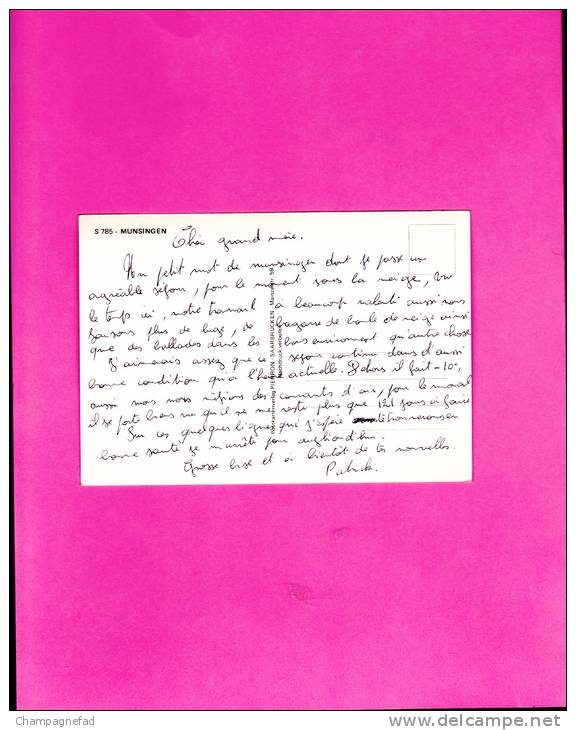 S 785 - MUNSINGEN
Chèr grand mère.
Un petit mot de munsingen dont je passe un
agréable séjour, pour le moment sous la neige, vu
le temps ici, notre travail à beaucoup ralenti aussi nous
faisons plus de luge, de bagarre de boule de neige ainsi
que des ballades dans les bois environent qu'autre chose
J'aimerais assez que ce séjour continu dans d'aussi
bonne condition qu'a l'heure actuelle. Dehors il fait -10°,
aussi nous nous méfions des courants d'air, pour le moral
il se porte biens vu qu'il ne me reste plus que 121 jours à faire
Sur ces quelques ligne qui j'espère te trouverons en
bonne santé je m'arrête pour aujourd'hui.
Grosse bise et à bientôt de tes nouvelles.
Patrick.
PIERRON - SAARBRÜCKEN
Champagnefad
www.delcampe.net